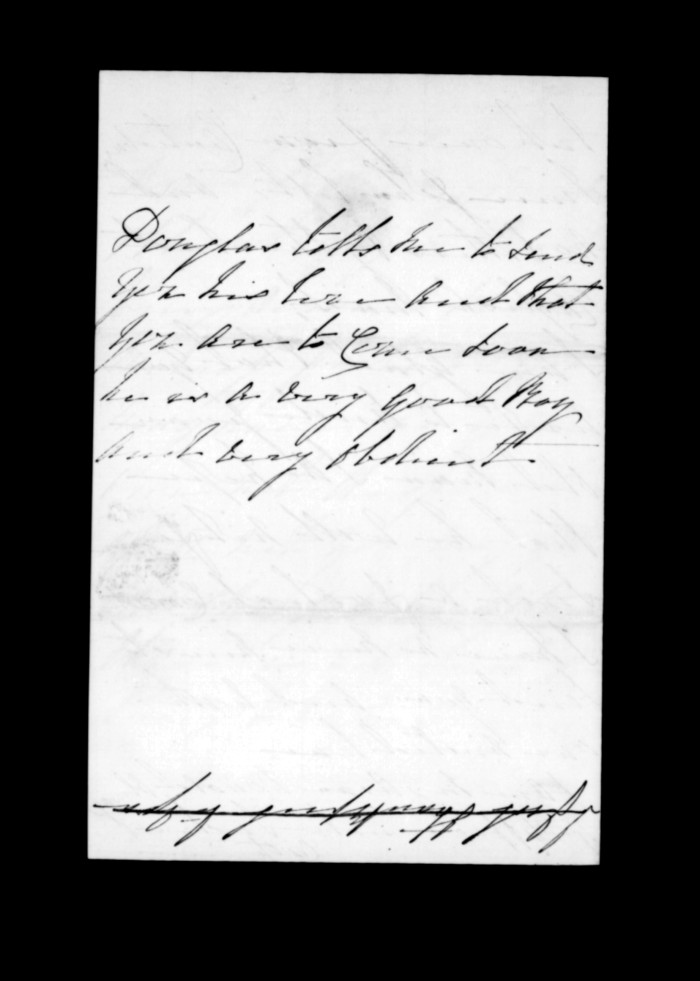 Douglas tells me to send
you his love and that
you are to Come soon
he is a very good Boy
and very obedient